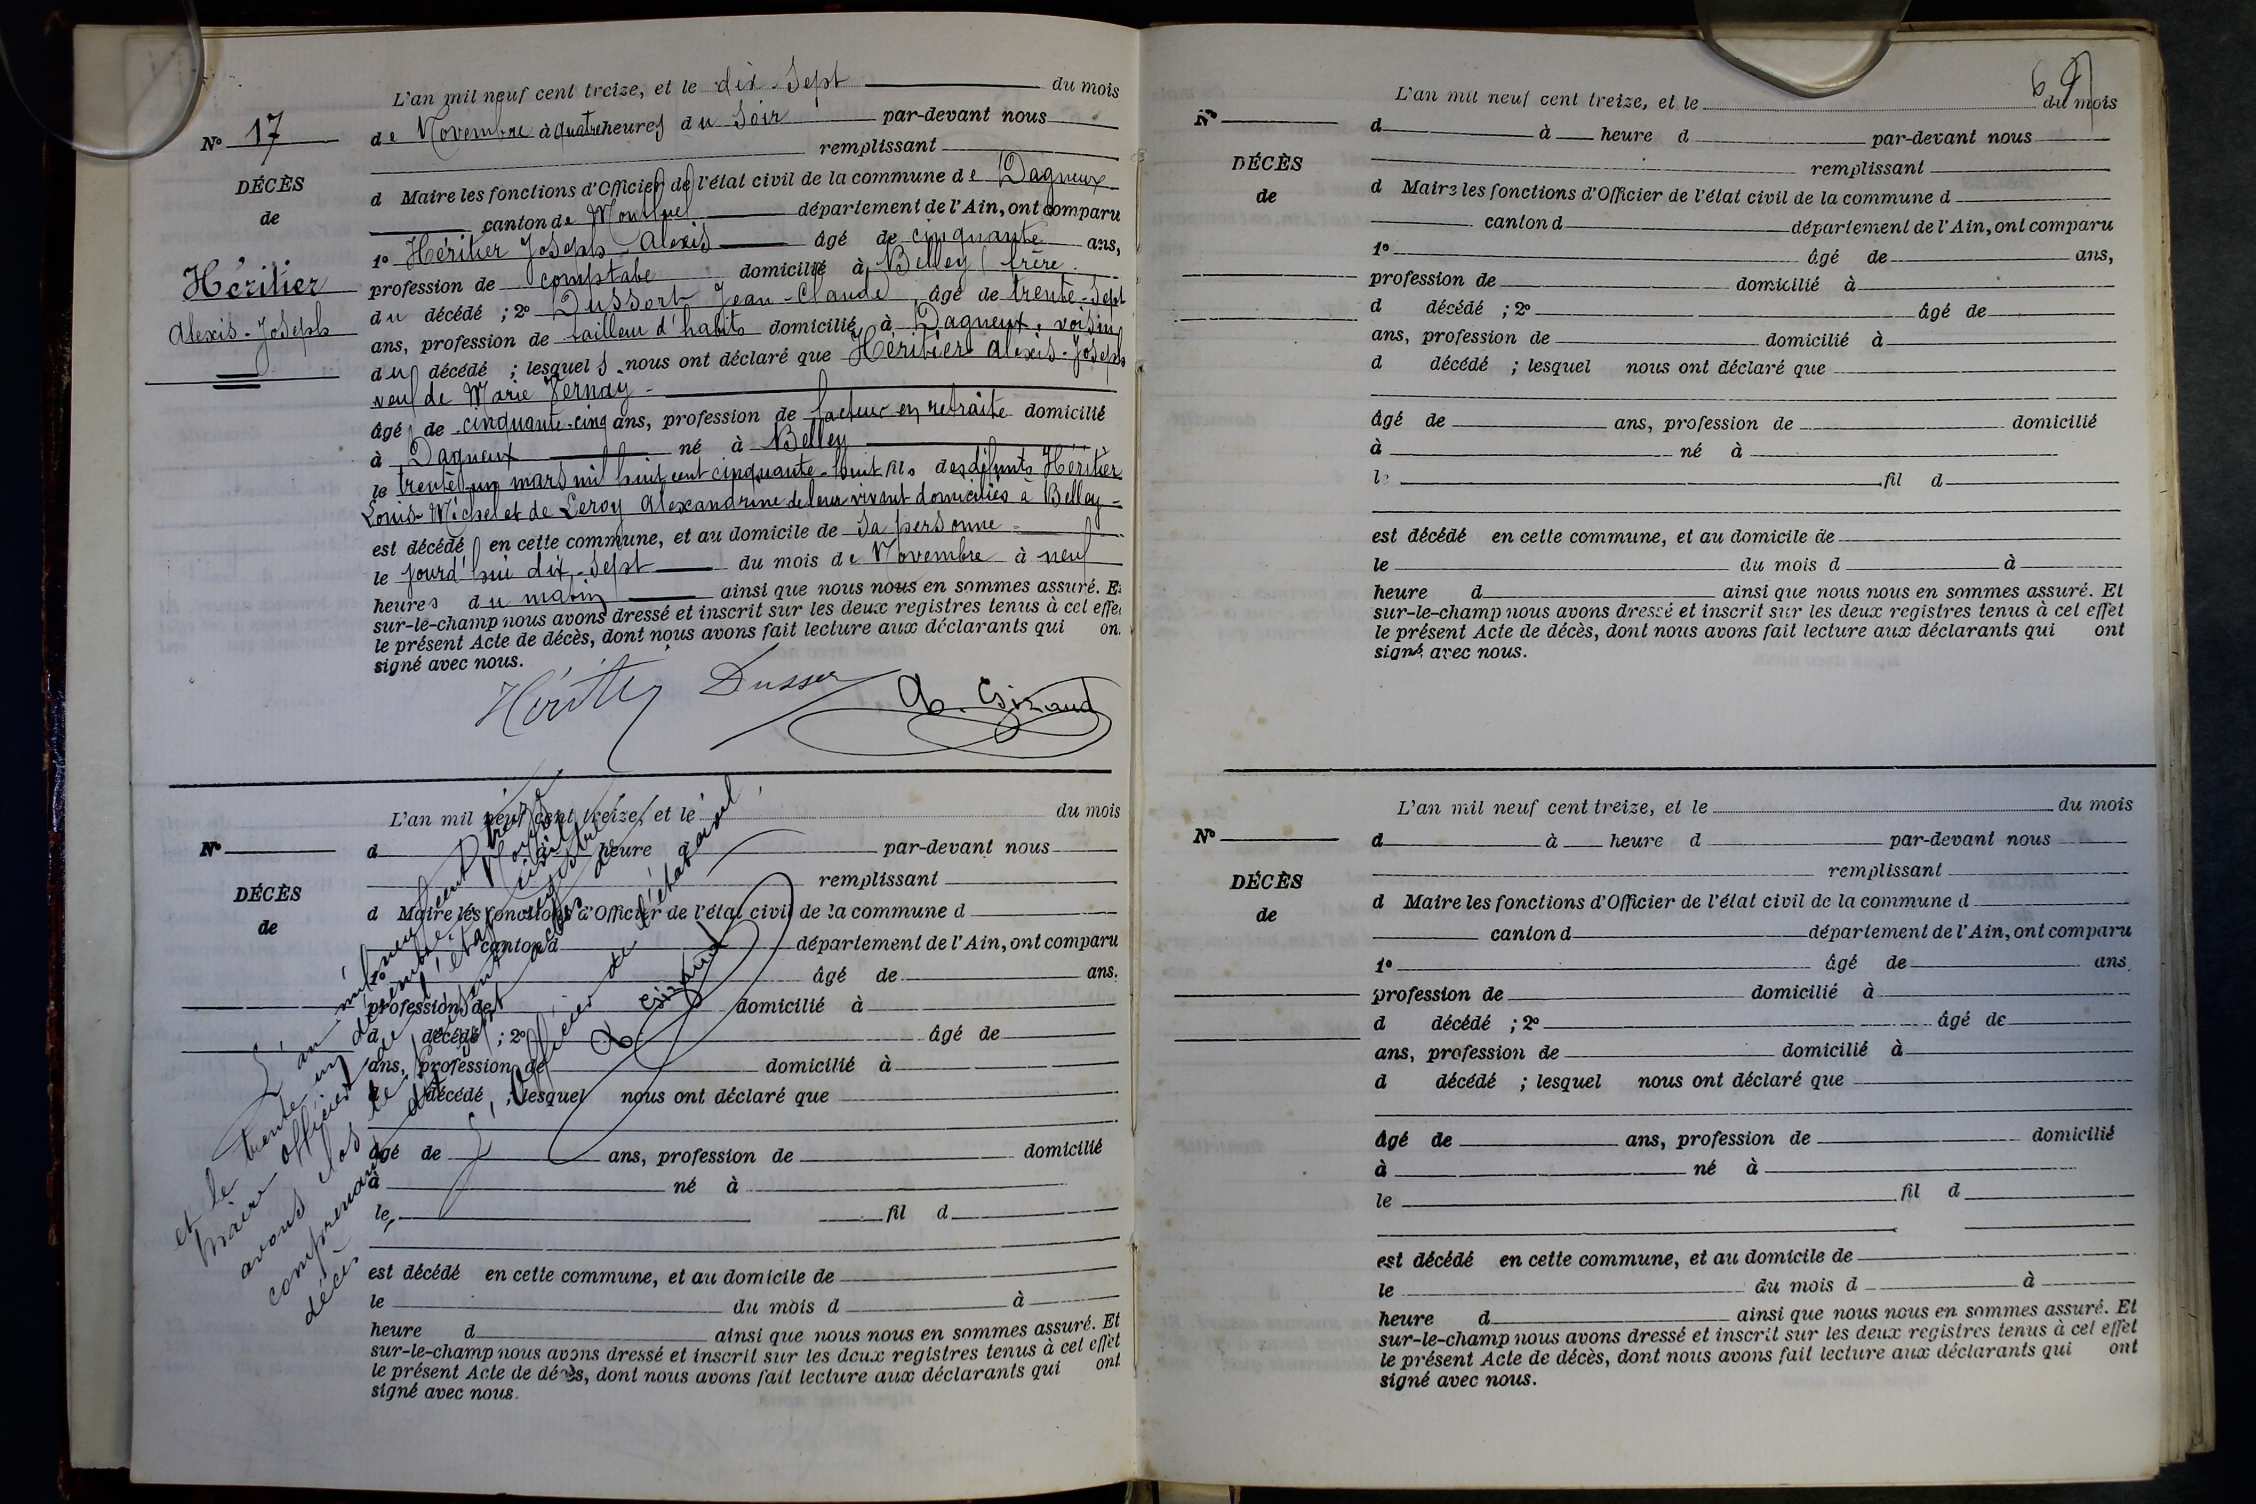 N° 17
DÉCÈS
de
Héritier
Alexis-Joseph
L'an mil neuf cent treize, et le dix-sept du mois
de Novembre à quatre heures du soir par-devant nous
remplissant
d Maire les fonctions d'Officier de l'état civil de la commune de Dagneux
canton de Montluel département de l'Ain, ont comparu
1° Héritier Joseph-Alexis âgé de cinquante ans,
profession de comptable domicilié à Belley frère
du décédé ; 2° Dussort Jean-Claude, âgé de trente-sept
ans, profession de tailleur d'habits domicilié à Dagneux, voisin
du décédé ; lesquels nous ont déclaré que Héritier Alexis-Joseph
veuf de Marie Vernay
âgé de cinquante-cinq ans, profession de facteur en retraite domicilié
à Dagneux né à Belley
le trente-un mars mil huit cent cinquante-huit fils des défunts Héritier
Louis-Michel et de Leroy Alexandrine de leur vivant domiciliés à Belley
est décédé en cette commune, et au domicile de sa personne
le jourd'hui dix-sept du mois de Novembre à neuf
heures du matin ainsi que nous nous en sommes assuré. Et
sur-le-champ nous avons dressé et inscrit sur les deux registres tenus à cet effet
le présent Acte de décès, dont nous avons fait lecture aux déclarants qui on
signé avec nous.
Héritier Dussort
N°
DÉCÈS
de
L'an mil neuf cent treize, et le du mois
d à heure d par-devant nous
remplissant
d Maire les fonctions d'Officier de l'état civil de la commune d
canton d département de l'Ain, ont comparu
1° âgé de ans.
profession de domicilié à
d décédé ; 2° âgé de
ans, profession de domicilié à
d décédé ; lesquel nous ont déclaré que
âgé de ans, profession de domicilié
à né à
le fil d
est décédé en cette commune, et au domicile de
le du mois d à
heure d ainsi que nous nous en sommes assuré. Et
sur-le-champ nous avons dressé et inscrit sur les deux registres tenus à cet effet
le présent Acte de décès, dont nous avons fait lecture aux déclarants qui ont
signé avec nous.
L'an mil neuf cent treize
et le trente un décembre Nous
maire officier de l'état civil
avons clos le présent registre
comprenant dix sept actes de
décès
L'officier de l'état civil
69
N°
DÉCÈS
de
L'an mil neuf cent treize, et le du mois
d à heure d par-devant nous
remplissant
d Maire les fonctions d'Officier de l'état civil de la commune d
canton d département de l'Ain, ont comparu
1° âgé de ans,
profession de domicilié à
d décédé ; 2° âgé de
ans, profession de domicilié à
d décédé ; lesquel nous ont déclaré que
âgé de ans, profession de domicilié
à né à
le fil d
est décédé en cette commune, et au domicile de
le du mois d à
heure d ainsi que nous nous en sommes assuré. Et
sur-le-champ nous avons dressé et inscrit sur les deux registres tenus à cet effet
le présent Acte de décès, dont nous avons fait lecture aux déclarants qui ont
signé avec nous.
N°
DÉCÈS
de
L'an mil neuf cent treize, et le du mois
d à heure d par-devant nous
remplissant
d Maire les fonctions d'Officier de l'état civil de la commune d
canton d département de l'Ain, ont comparu
1° âgé de ans
profession de domicilié à
d décédé ; 2° âgé de
ans, profession de domicilié à
d décédé ; lesquel nous ont déclaré que
âgé de ans, profession de domicilié
à né à
le fil d
est décédé en cette commune, et au domicile de
le du mois d à
heure d ainsi que nous nous en sommes assuré. Et
sur-le-champ nous avons dressé et inscrit sur les deux registres tenus à cet effet
le présent Acte de décès, dont nous avons fait lecture aux déclarants qui ont
signé avec nous.